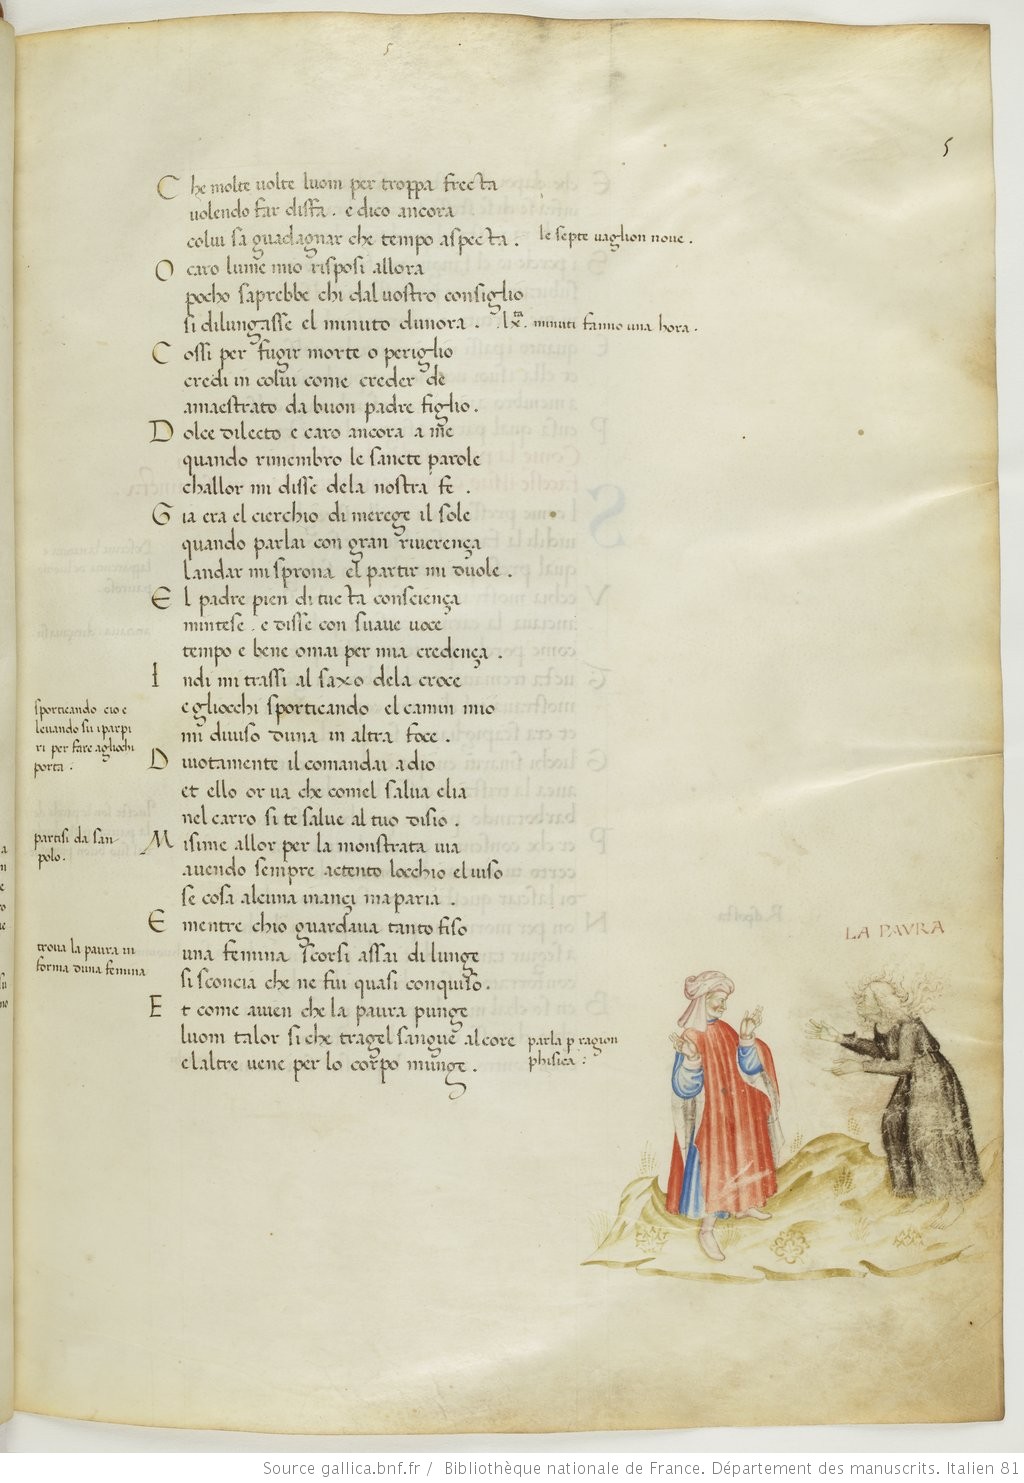 5
5
Che molte uolte luom per troppa frecta
uolendo far disfa . e dico ancora
colui sa guadagnar che tempo aspecta .
le septe uaglion noue .
O caro lume mio risposi allora
pocho saprebbe chi dal uostro consiglio
si dilungasse el minuto dunora .
.lxta. minuti fanno una hora .
Cossi per fugir morte o periglio
credi in colui come creder de
amaestrato da buon padre figlio .
Dolce dilecto e caro ancora a me
quando rimembro le sancte parole
challor mi disse dela nostra fe .
Gia era el cierchio di merege il sole
quando parlai con gran riuerença
landar mi sprona el partir mi duole .
El padre pien di tucta consciença
mintese . e disse con suaue uoce
tempo e bene omai per mia credença .
Indi mi trassi al saxo dela croce
e gliocchi sporticando el camin mio
mi diuiso duna in altra foce .
sporticando cio e
leuando su i parpi
ri per fare agliochi
porta :
Diuotamente il comandai a dio
et ello or ua che comel salua elia
nel carro si te salue al tuo disio .
Misime allor per la monstrata uia
auendo sempre actento locchio el uiso
se cosa alcuna inançi maparia .
partisi da san
polo .
E mentre chio guardaua tanto fiso
una femina scorsi assai di lunge
si sconcia che ne fui quasi conquiso .
troua la paura in
forma duna femina
Et come auien che la paura punge
luom talor si che tragel sangue al core
e laltre uene per lo corpo munge .
parla p ragion
phisica :
LA PAVRA
Source gallica.bnf.fr / Bibliothèque nationale de France. Département des manuscrits. Italien 81